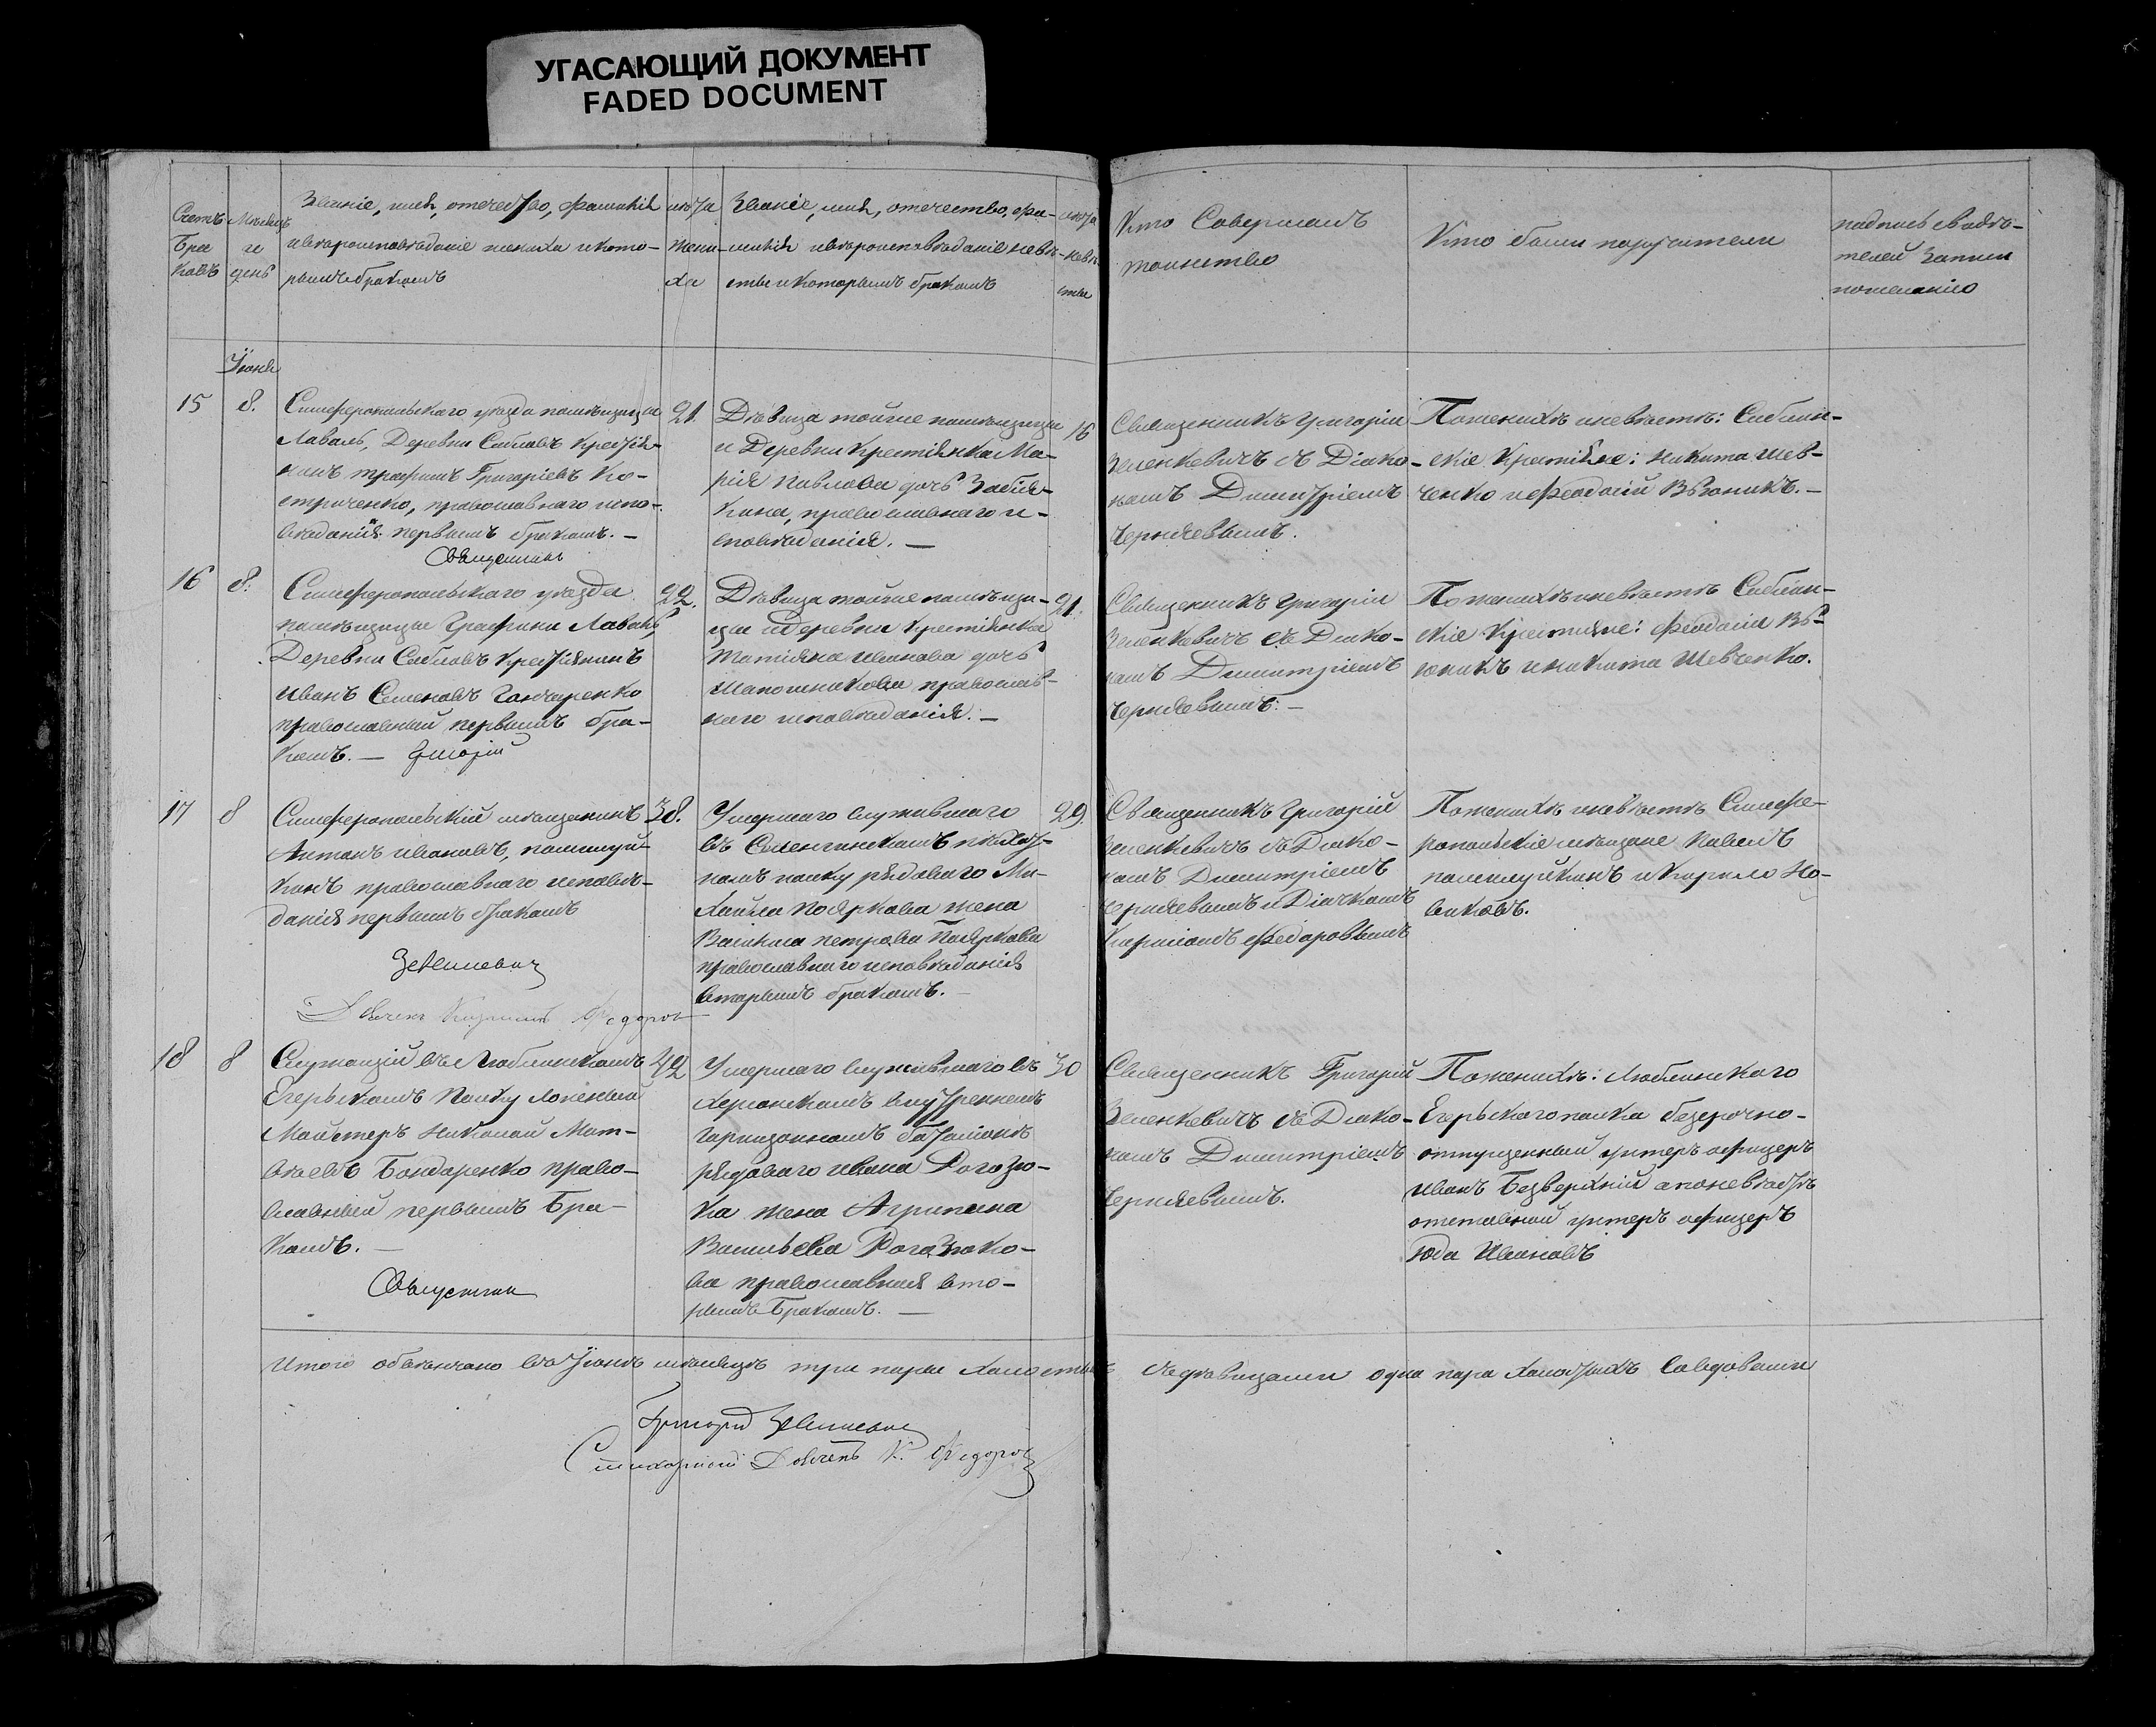 УГАСАЮЩИЙ ДОКУМЕНТ
FADED DOCUMENT
Счетъ
Бра
ковъ
Мѣсяцъ
и
день
Званіе, имя, отечество, фамилія
и вѣроисповѣданіе жениха и кото-
рымъ бракомъ
лѣта
жени-
ха
Званіе, имя, отечество, фа-
милія и вѣроисповѣданіе невѣ-
сты и которымъ бракомъ
лѣта
невѣ-
сты
Кто Совершалъ
таинство
Кто были поручители
подпись свидѣ-
телей записи
по желанію
Іюня
15
8.
Симферопольскаго уѣзда помѣщицы
Лаваль, Деревни Сабловъ Крестья-
нинъ Трофимъ Григоріевъ Ко-
стриченко, православнаго испо-
вѣданія первымъ бракомъ. —
Священникъ
21.
Дѣвица тойже помѣщицы
и Деревни крестьянка Ма-
рія Павлова дочь
православнаго и-
сповѣданія. —
16
Священникъ Григорій
Зеленкевичъ съ Діако-
номъ Димитріемъ
Чернявевымъ.
По женихѣ и невѣстѣ: Саблын-
скіе Крестьяне: Никита Шев-
ченко и Феодосій Вьюникъ. —
16
8.
Симферопольскаго уѣзда
помѣщицы Графини Лаваль,
Деревни Сабловъ Крестьянинъ
Иванъ Семеновъ Гончаренко
православный первымъ бра-
комъ. — Григорій
22.
Дѣвица тойже помѣщи-
цы и Деревни крестьянка
Татьяна Иванова дочь
Шапошникова православ-
наго исповѣданія. —
21.
Священникъ Григорій
Зеленкевичъ съ Діако-
номъ Димитріемъ
Чернявевымъ. —
По женихѣ и невѣстѣ Саблын-
скіе Крестьяне: Феодосій Вь-
юникъ и Никита Шевченко.
17
8
Симферопольскій мѣщанинъ
Антонъ Ивановъ,
православнаго исповѣ-
данія первымъ бракомъ
Зеленкевичъ
Дьячекъ Федоровъ
38.
Умершаго служившаго
въ Селенгинскомъ пѣхот-
номъ полку рядоваго Ми-
хайла Пояркова жена
Василиса Петрова Пояркова
православнаго исповѣданія
вторымъ бракомъ. —
29.
Священникъ Григорій
Зеленкевичъ съ Діако-
номъ Димитріемъ
Чернявевымъ и Діачкомъ
Федоровымъ
По женихѣ и невѣстѣ Симфе-
ропольскіе мѣщане Павелъ
и Кирило Но-
виковъ.
18
8
Служащій въ Люблинскомъ
Егерьскомъ Полку Ложеный
Мастеръ Николай Мат-
вѣевъ Бондаренко право-
славный первымъ Бра-
комъ. —
Священникъ
42
Умершаго служившаго въ
Херсонскомъ внутреннемъ
гарнизонномъ баталіонѣ
рядоваго Ивана Рогозю-
ка жена Агрипина
Васильева Рогозюко-
ва православная вто-
рымъ Бракомъ. —
30
Священникъ Григорій
Зеленкевичъ съ Діако-
номъ Димитріемъ
Чернявевымъ.
По женихѣ: Люблинскаго
Егерьскаго полка безсрочно-
отпущенный унтеръ офицеръ
Иванъ Безверхній а по невѣстѣ
отставной унтеръ офицеръ
Юда Ивановъ
Итого обвѣнчано въ Іюнѣ мѣсяцѣ три пары холостыхъ съ дѣвицами одна пара холостыхъ со вдовами
Григорій Зеленкевичъ
Стихарный Дьячекъ К. Федоровъ